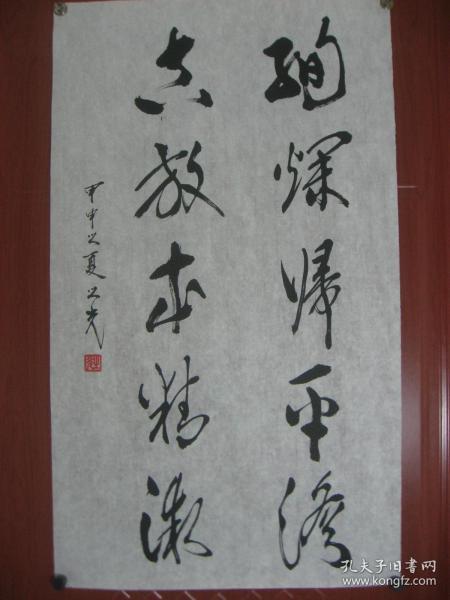 绚烂归平淡
真放本精微
甲申之夏之光
孔夫子旧书网
www.kongfz.com